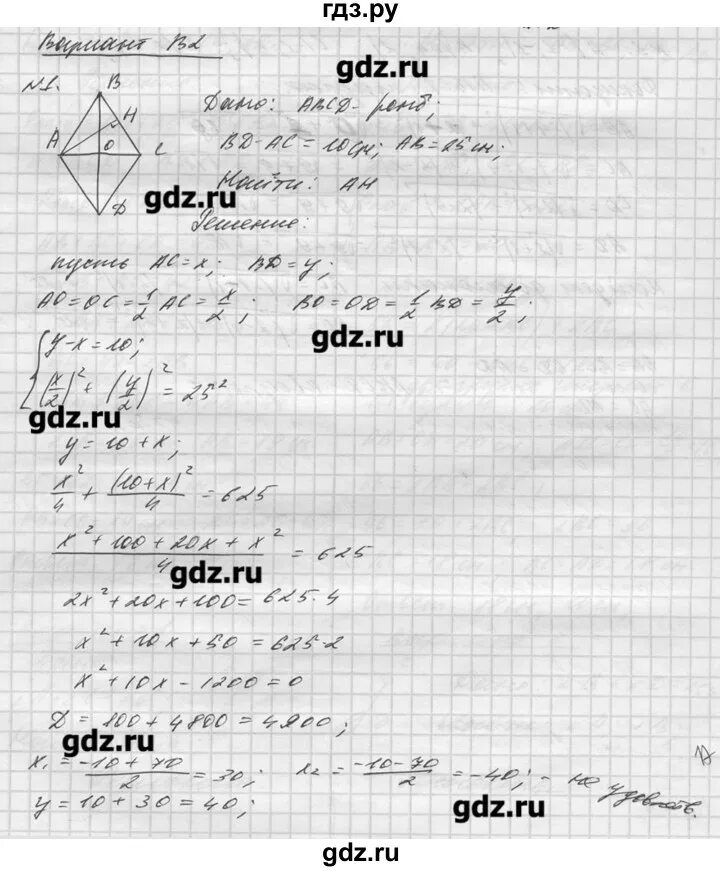 гдз.ру
Вариант В2
gdz.ru
№1.
B
H
A
O
C
D
Дано: ABCD - ромб;
BD - AC = 10 см; AB = 25 см;
Найти: AH
gdz.ru
Решение:
пусть AC = x; BD = y;
AO = OC = 1/2 AC = x/2; BO = OD = 1/2 BD = y/2;
gdz.ru
{ y - x = 10;
(x/2)² + (y/2)² = 25²
gdz.ru
y = 10 + x;
x²/4 + (10+x)²/4 = 625
(x² + 100 + 20x + x²)/4 = 625
gdz.ru
2x² + 20x + 100 = 625·4
x² + 10x + 50 = 625·2
x² + 10x - 1200 = 0
D = 100 + 4800 = 4900;
gdz.ru
x₁ = (-10 + 70)/2 = 30; x₂ = (-10 - 70)/2 = -40; - не удовлетв.
y = 10 + 30 = 40;
gdz.ru
gdz.ru